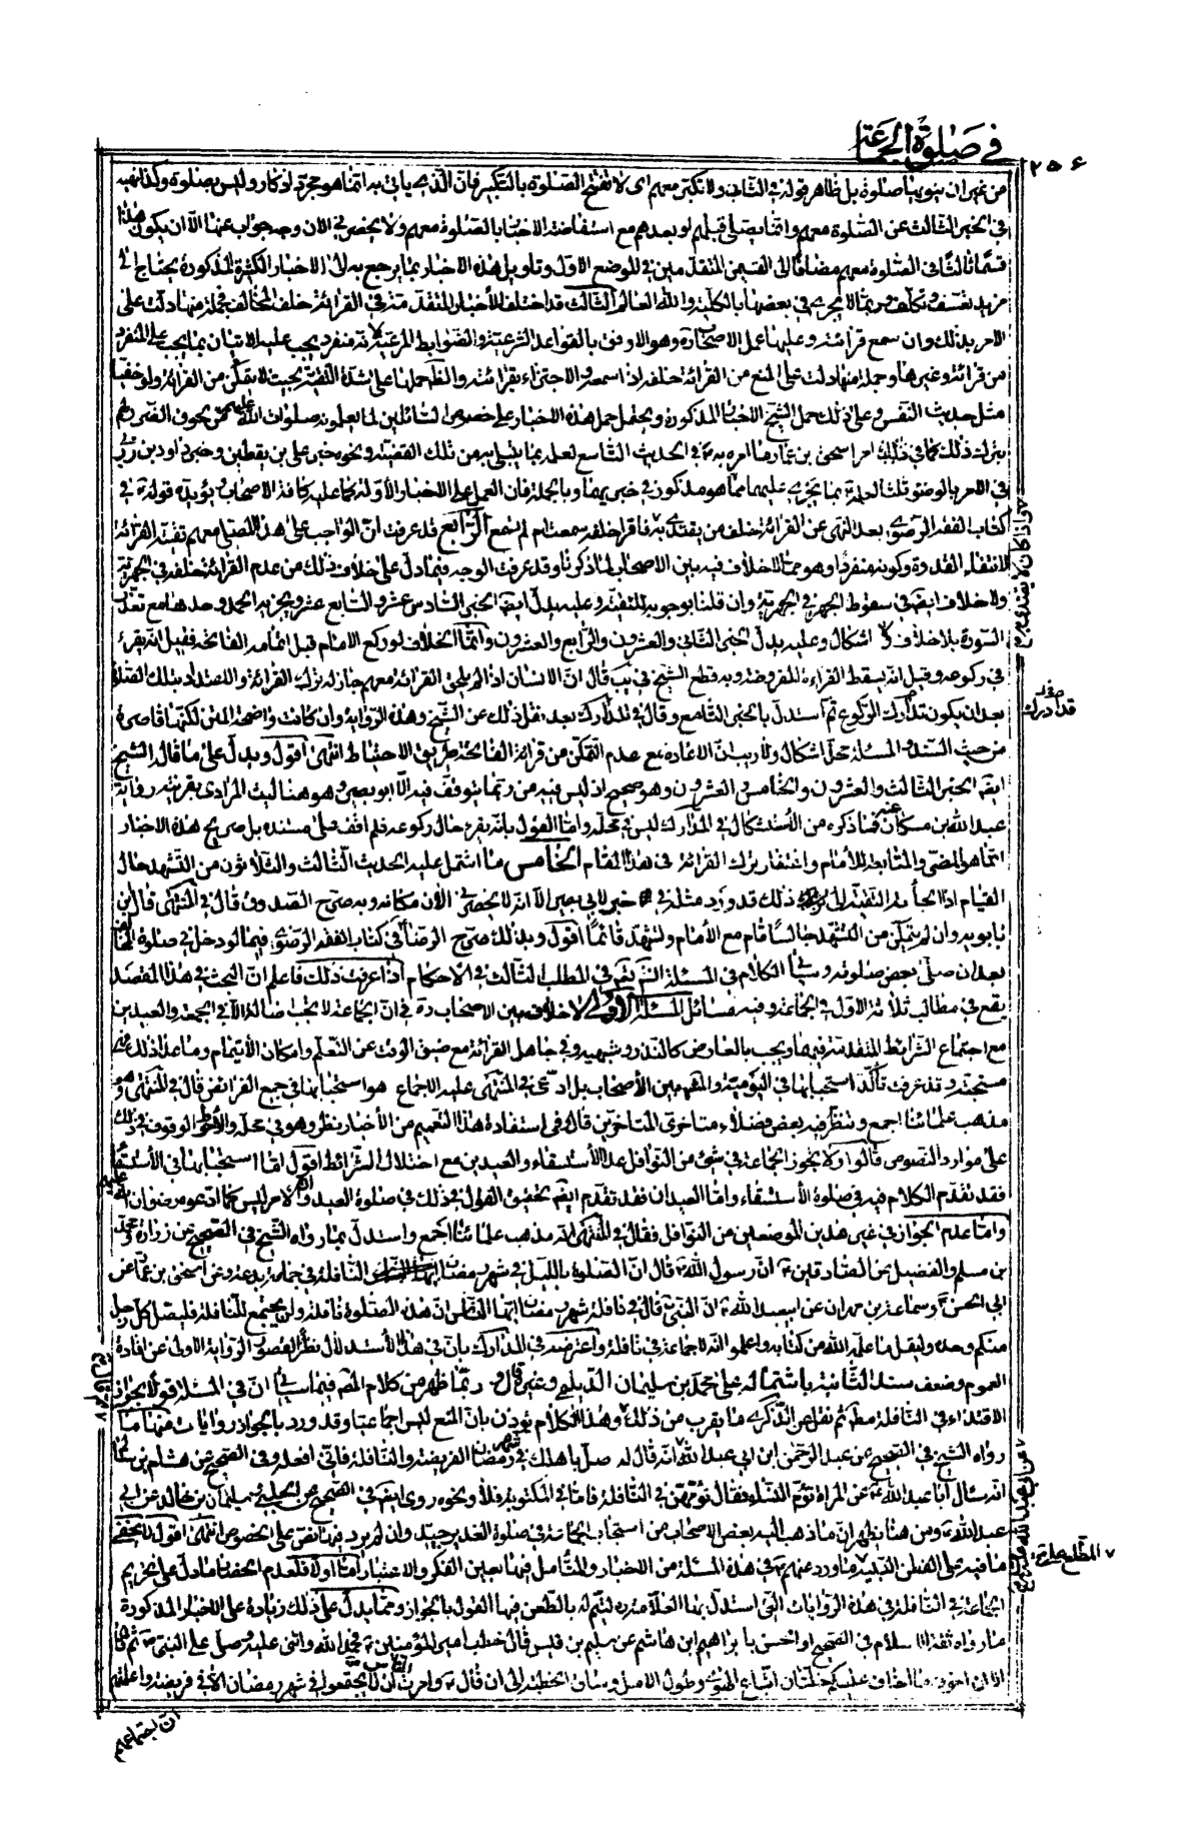 في صلوة الجماعة
٢٥۶
من غير ان ينويها صلوة بل ظاهر قوله في الثاني ولا تكبر معهم اى لا تفتتح الصلوة بالتكبير فان الذي ياتي به انما هو مجرد اذكار وليس بصلوة وكذا نهيه
في الخبر الثالث عن الصلوة معهم وانما يصلى قبلهم او بعدهم مع استفاضة الاخبار بالصلوة معهم ولا يحضرني الان وجه جواب عنها الا ان يكون هذا
قسما ثالثا في الصلوة معهم مضافا الى القسمين المتقدمين في الموضع الاول وتاويل هذه الاخبار بما يرجع به الى الاخبار الكثيرة المذكورة يحتاج الى
مزيد تعسف وتكلف وربما لا يجري في بعضها بالكلية والله العالم الثالث قد اختلف الاخبار المتقدمة في القرائة خلف المخالف فجملة منها دلت على
الامر بذلك وان سمع قرائته وعليها عمل الاصحاب وهو الاوفق بالقواعد الشرعية والضوابط المرعية لانه منفرد يجب عليه الاتيان بما يجب على المنفرد
من قرائة وغيرها وجملة منها دلت على المنع من القرائة خلفه اذا اسمعه والاجتزاء بقرائته والظ حملها على شدة التقية بحيث لا يتمكن من القرائة ولو خفيا
مثل حديث النفس وعلى ذلك حمل الشيخ الاخبار المذكورة ويحتمل حمل هذه الاخبار على خصوص السائلين لما يعلمونه صلوات الله عليهم من لحوق الضرر لهم
بترك ذلك كما في ذلك امر اسحق بن عمار بما امره به في الحديث التاسع لعله بما يبتلى به من تلك القضية ونحوه خبر على بن يقطين وخبر داود بن زربي
في الامر بالوضوء تلك المدة بما يجرى عليهما مما هو مذكور في خبريهما وبالجملة فان العمل على الاخبار الاولة كما عليه كافة الاصحاب ويؤيده قوله في
كتاب الفقه الرضوي بعد النهى عن القرائة خلف من يقتدى به فاقرا خلفه سمعت ام لم تسمع الرابع قد عرفت ان الواجب على هذا المصلى معهم تقية القرائة
لانتفاء القدوة وكونه منفردا وهو مما لا خلاف فيه بين الاصحاب لما ذكرنا وقد عرفت الوجه فيما دل على خلاف ذلك من عدم القرائة خلفه في الجهرية
ولا خلاف ايض في سقوط الجهر في الجهرية وان قلنا بوجوبه للتقية وعليه يدل ايض الخبر السادس عشر والسابع عشر ويجزيه الحمد وحدها مع تعذر
السورة بلا خلاف ولا اشكال وعليه يدل الخبر الثاني والعشرون والرابع والعشرون وانما الخلاف لو ركع الامام قبل اتمامه الفاتحة فقيل انه يقرء
في ركوعه وقيل انه يسقط القراءة للضرورة وبه قطع الشيخ في يب قال ان الانسان اذا لم يلحق القرائة معهم جاز له ترك القرائة والاعتداد بتلك الصلوة
بعد ان يكون قد ادرك الركوع ثم استدل بالخبر التاسع وقال في المدارك بعد نقل ذلك عن الشيخ وهذه الرواية وان كانت واضحة المتن لكنها قاصرة
من حيث السند والمسئلة محل اشكال ولا ريب ان الاعادة مع عدم التمكن من قرائة الفاتحة طريق الاحتياط انتهى اقول ويدل على ما قاله الشيخ
ايض الخبر الثالث والعشرون والخامس والعشرون وهو صحيح اذ ليس فيه من ربما يتوقف فيه الا ابو بصير وهو هنا ليث المرادي بقرينة رواية
عبد الله بن مسكان عنه فما ذكره من الاستشكال في المدارك ليس في محله واما القول بانه يقرء حال ركوعه فلم اقف على مستنده بل صريح هذه الاخبار
انما هو المضي والمتابعة للامام واغتفار ترك القرائة في هذا المقام الخامس ما اشتمل عليه الحديث الثالث والثلاثون من التشهد حال
القيام اذا الجأته التقية الى ذلك قد ورد مثله في خبر لابي بصير الا انه لا يحضرني الان مكانه وبه صرح الصدوق قال في المنتهى قال ابن
بابويه وان لم يتمكن من التشهد جالسا قام مع الامام وتشهد قائما اقول وبذلك صرح الرضا في كتاب الفقه الرضوي فيما لو دخل في صلوة المخالف
بعد ان صلى بعض صلوته وسيأتي الكلام في المسئلة انش تع في المطلب الثالث في الاحكام اذا عرفت ذلك فاعلم ان البحث في هذا المقصد
يقع في مطالب ثلاثة الاول في الجماعة وفيه مسائل المسئلة الاولى لا خلاف بين الاصحاب ره في ان الجماعة لا تجب اصالة الا في الجمعة والعيدين
مع اجتماع الشرائط المتقدمة فيهما ويجب بالعارض كالنذر وشبهه وفي جاهل القرائة مع ضيق الوقت عن التعلم وامكان الايتمام وما عدا ذلك فهى
مستحبة وقد عرفت تأكد استحبابها في اليومية والمشهور بين الأصحاب بل ادعى في المنتهى عليه الاجماع هو استحبابها في جميع الفرائض قال في المنتهى وهو
مذهب علمائنا اجمع وتنظر فيه بعض فضلاء متاخري المتاخرين قال وفى استفادة هذا التعميم من الأخبار نظر وهو في محله والأحوط الوقوف في ذلك
على موارد النصوص قالوا ولا يجوز الجماعة في شئ من النوافل عدا الأستسقاء والعيدين مع اختلال الشرائط اقول اما استحبابها في الأستسقاء
فقد تقدم الكلام فيه في صلوة الأستسقاء واما العيدان فقد تقدم ايض تحقيق القول في ذلك في صلوة العيد والامر ليس كما ادعوه رضوان الله عليهم
واما عدم الجواز في غير هذين الموضعين من النوافل فقال في المنتهى انه مذهب علمائنا اجمع واستدل بما رواه الشيخ في الصحيح عن زرارة ومحمد
بن مسلم والفضيل عن الصادقين ان رسول الله قال ان الصلوة بالليل في شهر رمضان النافلة في جماعة بدعة وعن اسحق بن عمار عن
ابي الحسن وسماعة بن مهران عن ابيعبد الله ان النبي قال في نافلة شهر رمضان ايها الناس ان هذه الصلوة نافلة ولن يجتمع للنافلة فليصل كل رجل
منكم وحده وليقل ما علمه الله من كتابه واعلموا انه لا جماعة في نافلة واعترضه في المدارك بان في هذا الأستدلال نظر القصور الرواية الاولى عن افادة
العموم وضعف سند الثانية باشتماله على محمد بن سليمان الديلمي وغيره قال وربما ظهر من كلام المص فيما سيأتي ان في المسئلة قولا بجواز
الاقتداء في النافلة مطم ثم نقل عن الذكرى ما يقرب من ذلك وهذا الكلام يؤذن بان المنع ليس اجماعيا وقد ورد بالجواز روايات منها ما
رواه الشيخ في الصحيح عن عبد الرحمن ابن ابي عبد الله انه قال له صل باهلك في شهر رمضان الفريضة والنافلة فانى افعله وفى الصحيح عن هشام بن سالم
انه سأل ابا عبد الله عن المراة تؤم النساء فقال تؤمهن في النافلة فاما في المكتوبة فلا ونحوه روى ايض في الصحيح عن الحلبي وسليمان بن خالد عن ابي
عبد الله ومن هنا يظهر ان ما ذهب اليه بعض الاصحاب من استحباب الجماعة في صلوة الغدير جيد وان لم يرد فيها نص على الخصوص انتهى اقول لا يخفى
ما فيه على الفطن النبيه وما ورد عنهم في هذه المسئلة من الاخبار والمتامل فيها بعين الفكر والاعتبار اما اولا فلعدم انحصار ما دل على تحريم
الجماعة في النافلة في هذه الروايات التي استدل بها العلامة ره ليتم له بالطعن فيها القول بالجواز ومما يدل على ذلك زيادة على الاخبار المذكورة
ما رواه ثقة الاسلام في الصحيح او الحسن بابراهيم ابن هاشم عن سليم بن قيس قال خطب امير المؤمنين فحمد الله واثنى عليه وصلى على النبي ثم قال
الا ان اخوف ما اخاف عليكم خلتان اتباع الهوى وطول الامل وساق الخطبة الى ان قال وامرت الناس ان لا يجتمعوا في شهر رمضان الا في فريضة واعلمتهم
ان اجتماعهم